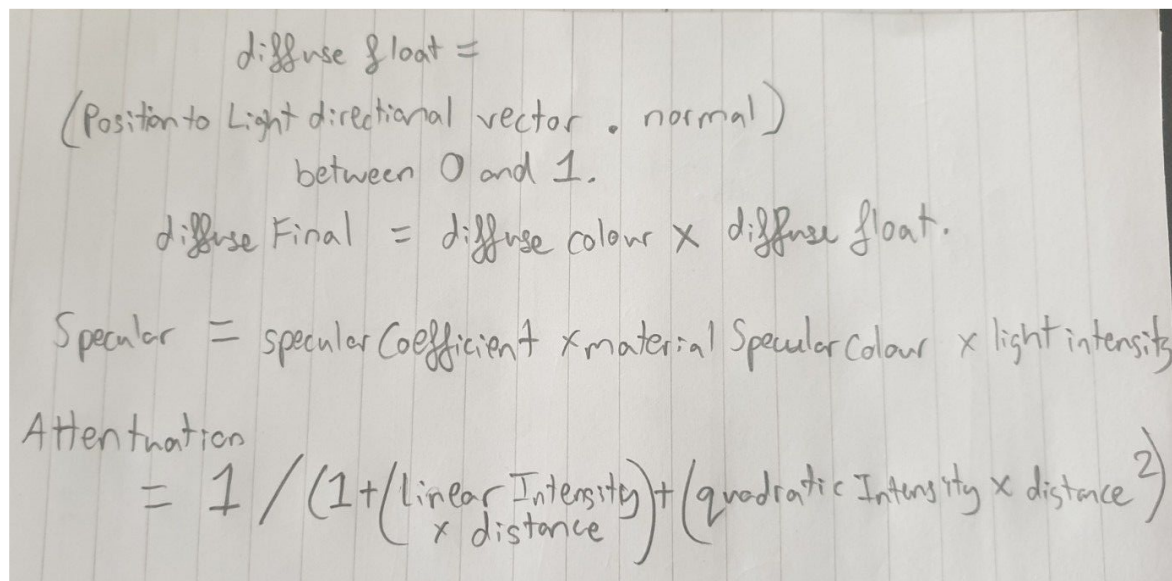 diffuse float =
(Position to Light directional vector . normal)
between 0 and 1.
diffuse Final = diffuse colour x diffuse float.
Specular = specular Coefficient x material Specular Colour x light intensity
Attentuation
= 1 / (1 + (linear Intensity) + (quadratic Intensity x distance²)
x distance